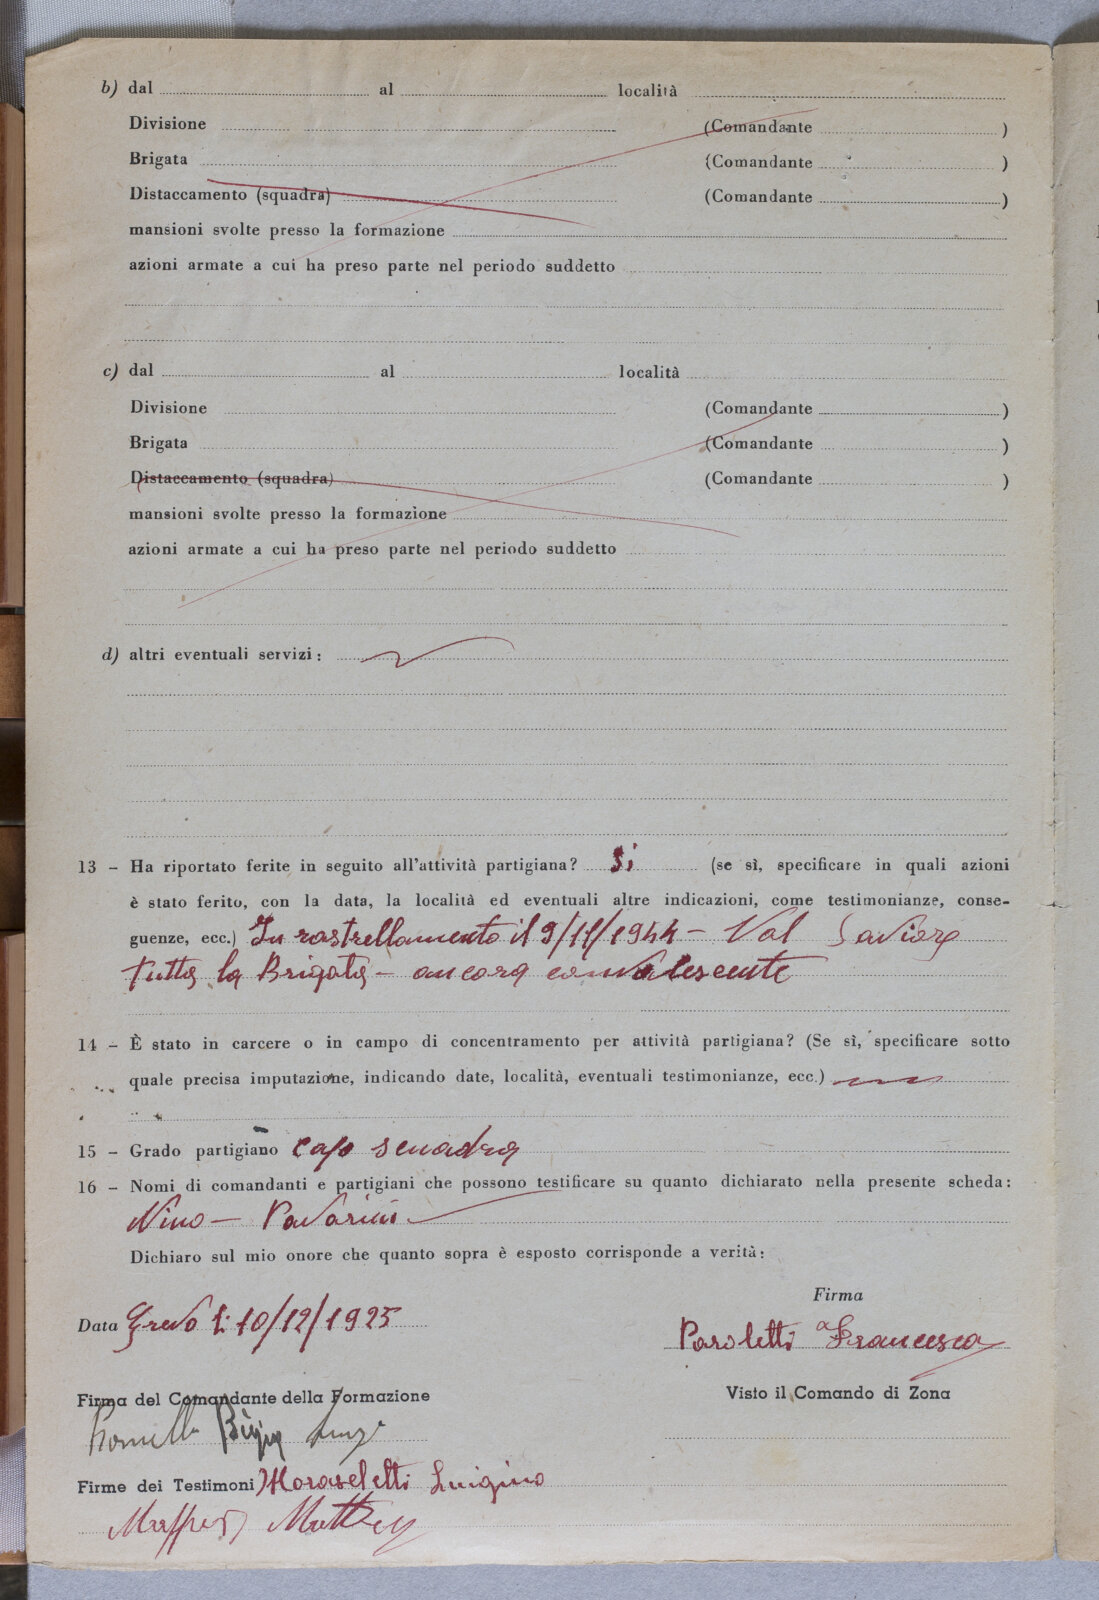 b) dal al località
Divisione (Comandante )
Brigata (Comandante )
Distaccamento (squadra) (Comandante )
mansioni svolte presso la formazione
azioni armate a cui ha preso parte nel periodo suddetto
c) dal al località
Divisione (Comandante )
Brigata (Comandante )
Distaccamento (squadra) (Comandante )
mansioni svolte presso la formazione
azioni armate a cui ha preso parte nel periodo suddetto
d) altri eventuali servizi:
13 – Ha riportato ferite in seguito all'attività partigiana? Si (se sì, specificare in quali azioni
è stato ferito, con la data, la località ed eventuali altre indicazioni, come testimonianze, conse-
guenze, ecc.) In rastrellamento il 9/11/1944 – Val Saviore
Tutta la Brigata – ancora convalescente
14 – È stato in carcere o in campo di concentramento per attività partigiana? (Se sì, specificare sotto
quale precisa imputazione, indicando date, località, eventuali testimonianze, ecc.)
15 – Grado partigiano capo scuadra
16 – Nomi di comandanti e partigiani che possono testificare su quanto dichiarato nella presente scheda:
Nino – Pavarini
Dichiaro sul mio onore che quanto sopra è esposto corrisponde a verità:
Firma
Data Grevo li 10/12/1925
Paroletti Francesca
Firma del Comandante della Formazione Visto il Comando di Zona
Firme dei Testimoni Luigino